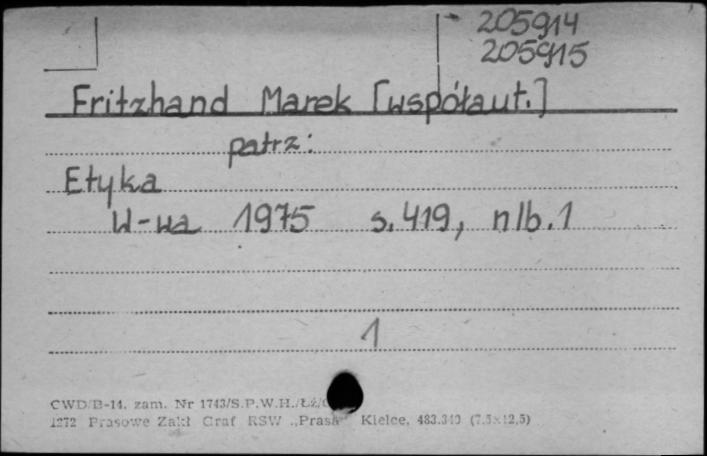 205914
205915
Fritzhand Marek [współaut.]
patrz:
Etyka
W-wa 1975 s. 419, nlb. 1
1
CWD/B-14. zam. Nr 1743/S.P.W.H./Łź/
1272 Prasowe Zakł Graf RSW „Prasa" Kielce, 483.340 (7.5×12,5)